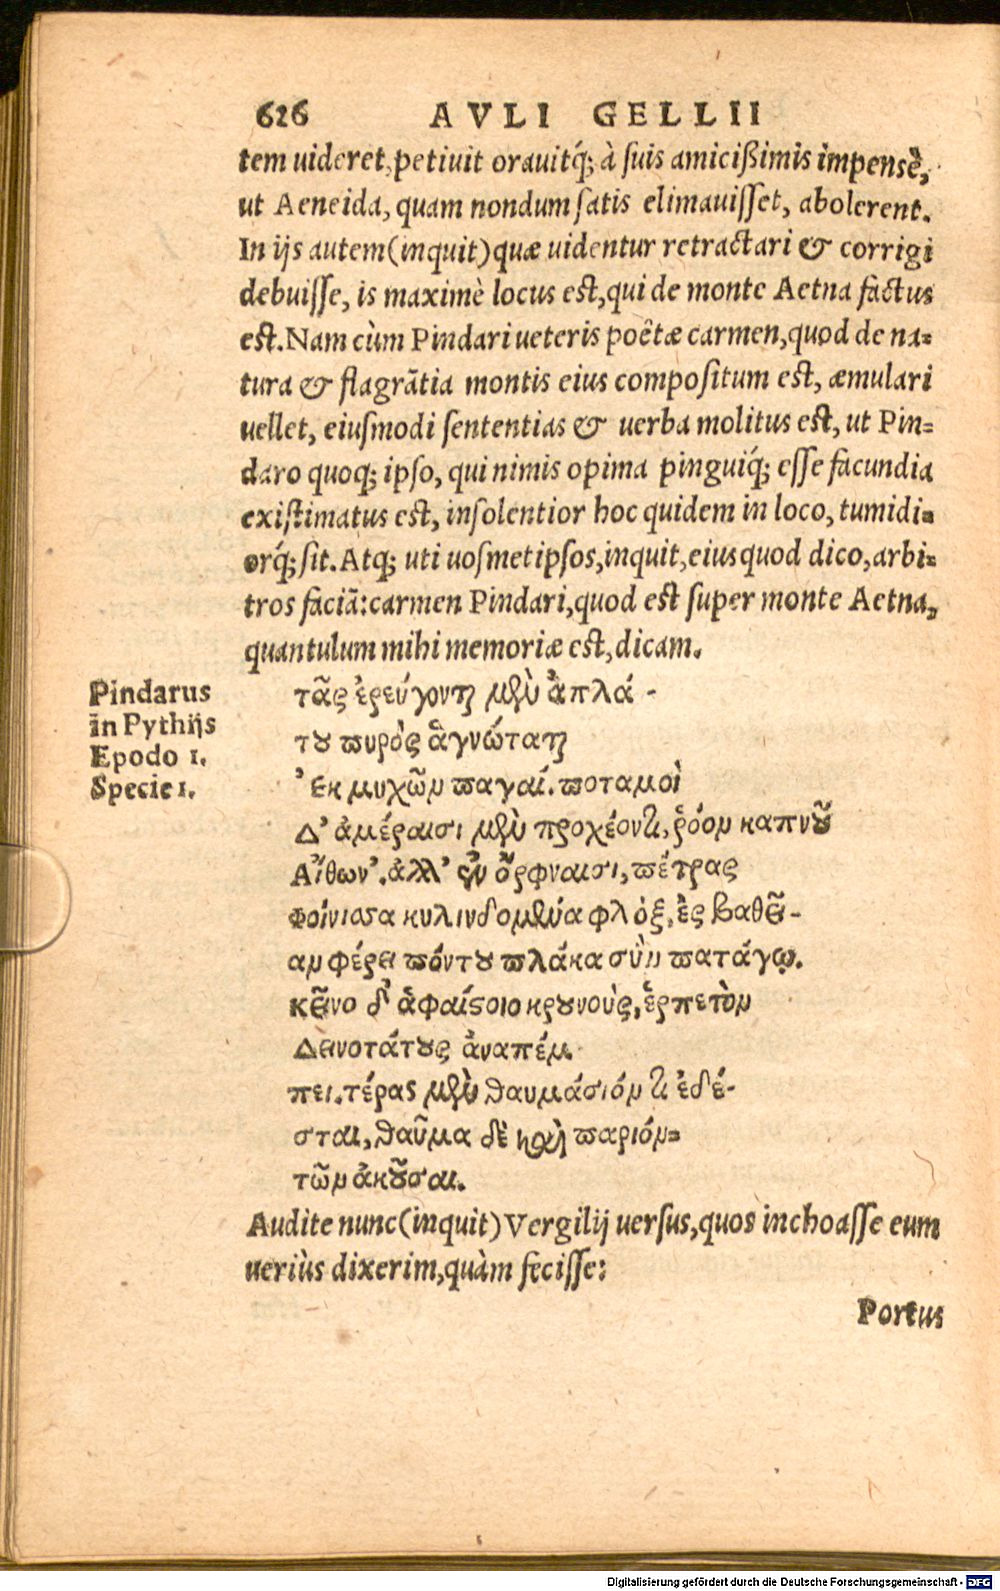 626 AVLI GELLII
tem uideret, petiuit orauitq́; à suis amicißimis impensè,
ut Aeneida, quam nondum satis elimauisset, abolerent.
In ijs autem (inquit) quæ uidentur retractari & corrigi
debuisse, is maximè locus est, qui de monte Aetna factus
est. Nam cùm Pindari ueteris poëtæ carmen, quod de na=
tura & flagrãtia montis eius compositum est, æmulari
uellet, eiusmodi sententias & uerba molitus est, ut Pin=
daro quoq; ipso, qui nimis opima pinguiq́; esse facundia
existimatus est, insolentior hoc quidem in loco, tumidi=
orq́; sit. Atq; uti uosmetipsos, inquit, eius quod dico, arbi=
tros faciã: carmen Pindari, quod est super monte Aetna,
quantulum mihi memoriæ est, dicam.
Pindarus
in Pythijs
Epodo 1.
Specie 1.
τᾶς ἐρεύγονται μὲν ἀπλά-
του πυρὸς ἁγνώταται
Ἐκ μυχῶν παγαί. ποταμοὶ
Δ' ἀμέραισι μὲν προχέοντι, ῥόον καπνοῦ
Αἴθων'. ἀλλ' ἐν ὄρφναισι, πέτρας
φοίνισσα κυλινδομένα φλὸξ, ἐς βαθεῖ-
αν φέρει πόντου πλάκα σὺν πατάγῳ.
κεῖνο δ' ἁφαίστοιο κρουνοὺς, ἑρπετὸν
Δεινοτάτους ἀναπέμ
πει. τέρας μὲν θαυμάσιόν τι ἐδέ-
σται, θαῦμα δὲ καὶ παριόν=
τῶν ἀκοῦσαι.
Audite nunc (inquit) Vergilij uersus, quos inchoasse eum
ueriùs dixerim, quàm fecisse:
Portus
Digitalisierung gefördert durch die Deutsche Forschungsgemeinschaft - DFG